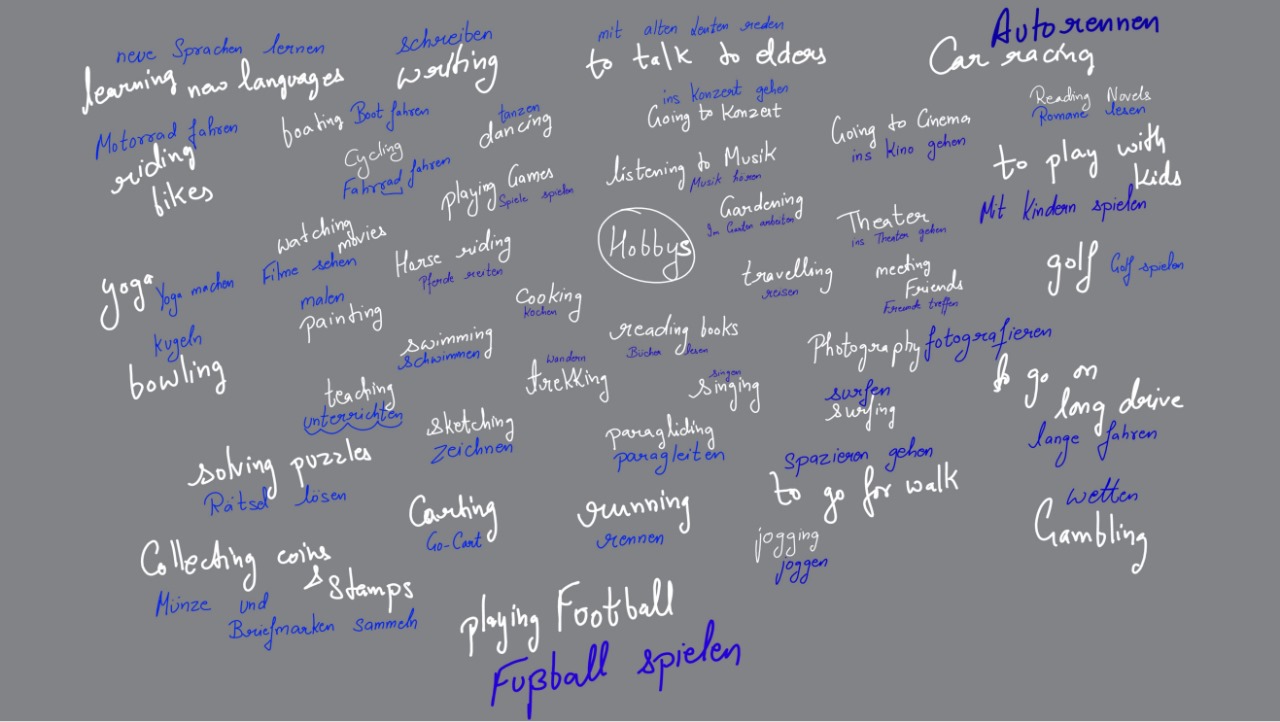 neue Sprachen lernen
learning new languages
schreiben
writing
mit alten Leuten reden
to talk to elders
Autorennen
Car racing
Motorrad fahren
riding
bikes
boating Boot fahren
tanzen
dancing
ins Konzert gehen
Going to Konzert
Going to Cinema
ins Kino gehen
Reading Novels
Romane lesen
Cycling
Fahrrad fahren
playing Games
Spiele spielen
listening to Musik
Musik hören
to play with
kids
Mit Kindern spielen
watching
movies
Filme sehen
Horse riding
Pferde reiten
Hobbys
Gardening
Im Garten arbeiten
Theater
ins Theater gehen
yoga Yoga machen
malen
painting
Cooking
kochen
travelling
reisen
meeting
Friends
Freunde treffen
golf Golf spielen
kugeln
bowling
swimming
schwimmen
reading books
Bücher lesen
Photography fotografieren
teaching
unterrichten
wandern
trekking
singen
singing
surfen
surfing
to go on
long drive
lange fahren
sketching
zeichnen
paragliding
paragleiten
spazieren gehen
to go for walk
solving puzzles
Rätsel lösen
Carting
Go-Cart
running
rennen
jogging
joggen
wetten
Gambling
Collecting coins
& stamps
Münze und
Briefmarken sammeln
playing Football
Fußball spielen